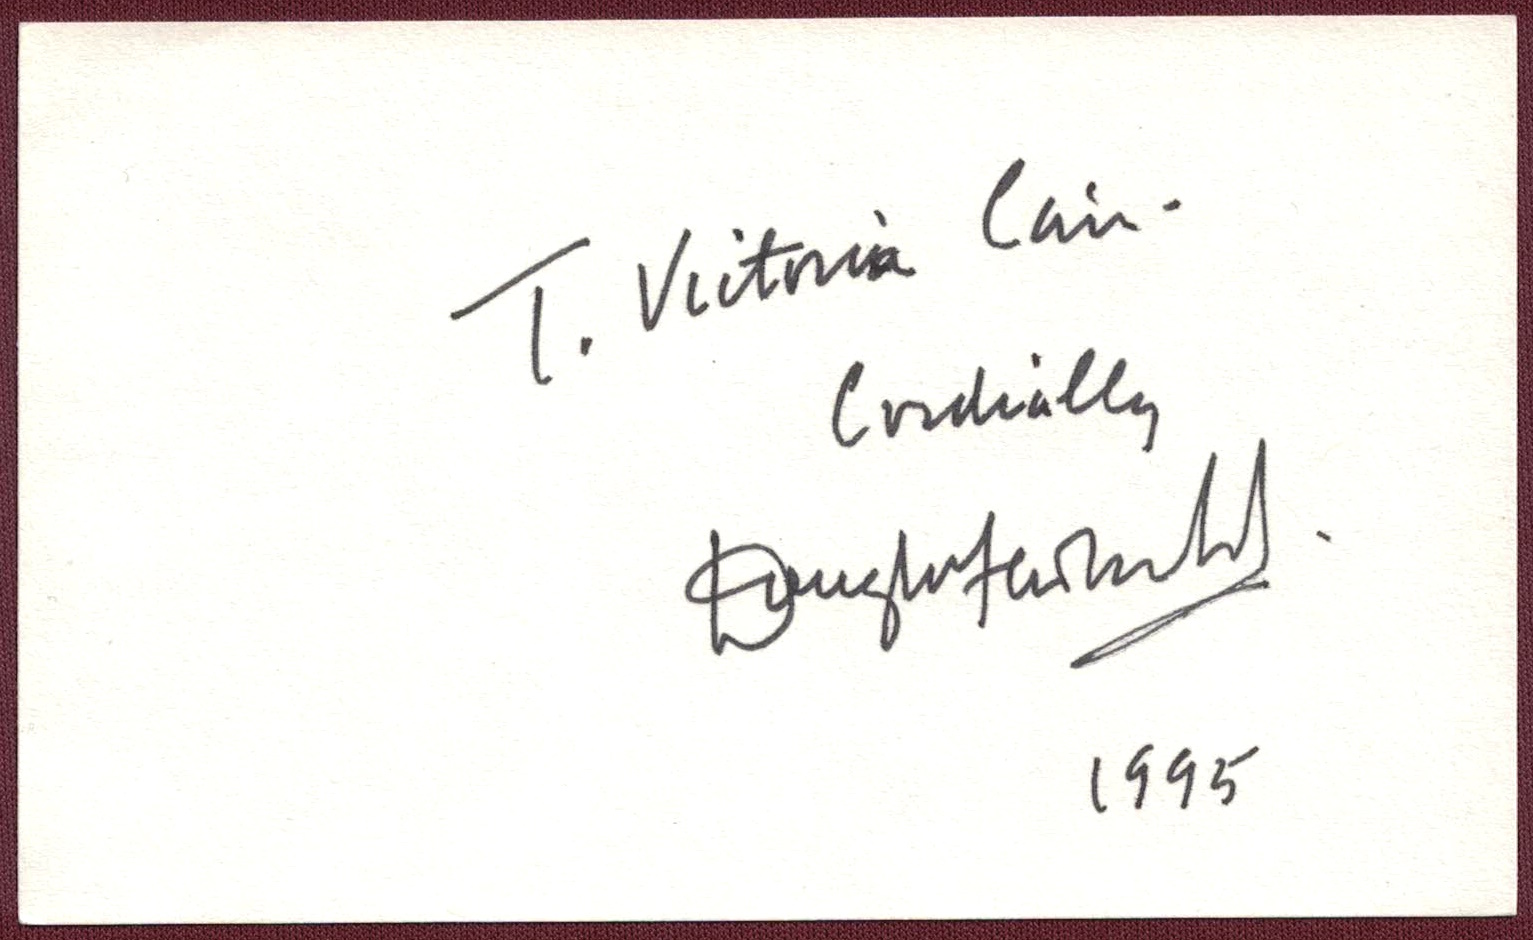 T. Victoria Cain-
Cordially
Douglas Fairbanks
1995